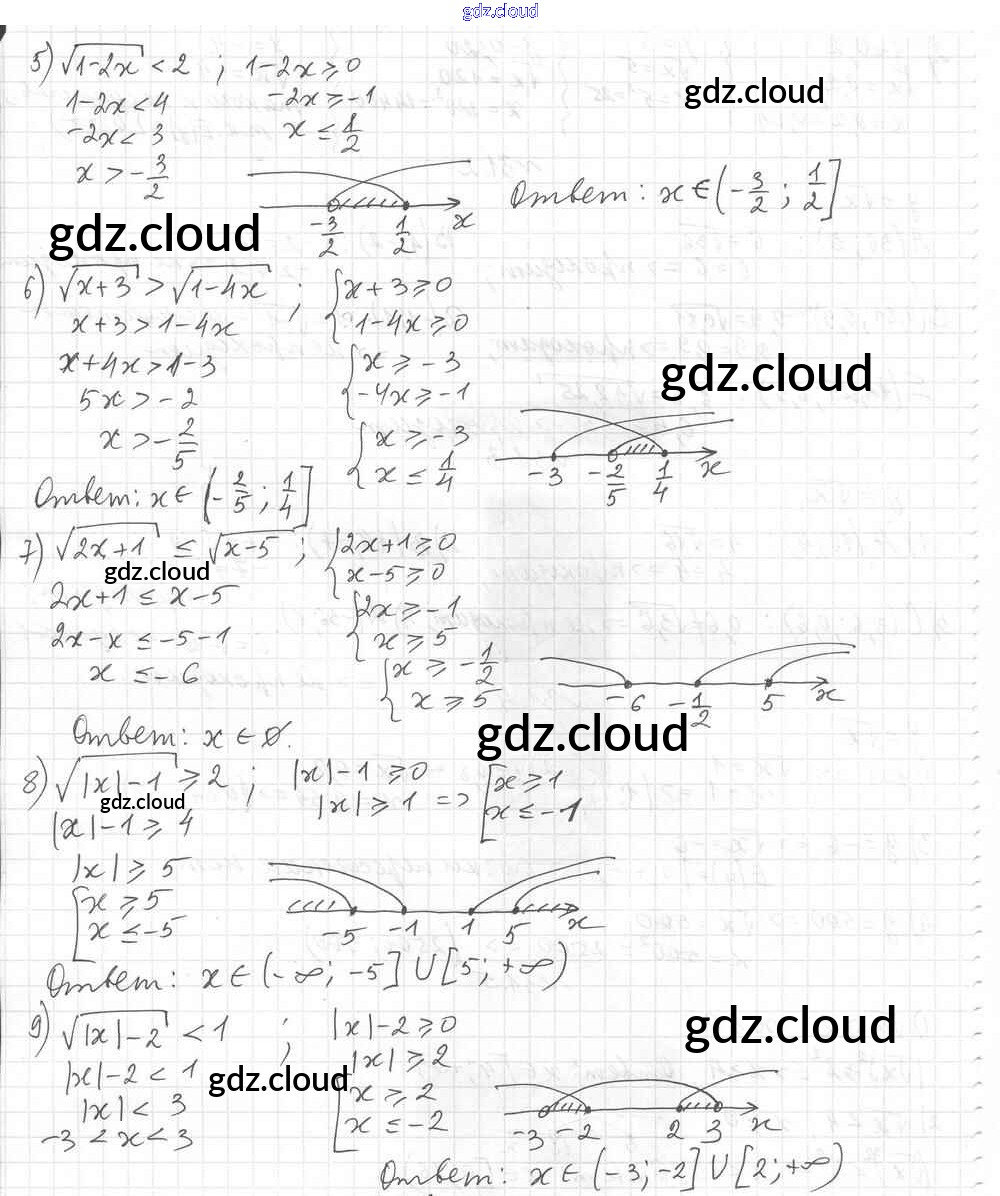 gdz.cloud
5) √(1-2x) < 2 ; 1-2x ≥ 0
1-2x < 4 -2x ≥ -1
-2x < 3 x ≤ 1/2
x > -3/2
gdz.cloud
-3/2 1/2 x
Ответ: x ∈ (-3/2 ; 1/2]
gdz.cloud
6) √(x+3) > √(1-4x) ; { x+3 ≥ 0
x+3 > 1-4x 1-4x ≥ 0
x+4x > 1-3 { x ≥ -3
5x > -2 -4x ≥ -1
x > -2/5 { x ≥ -3
x ≤ 1/4
gdz.cloud
-3 -2/5 1/4 x
Ответ: x ∈ (-2/5 ; 1/4]
7) √(2x+1) ≤ √(x-5) ; { 2x+1 ≥ 0
x-5 ≥ 0
gdz.cloud
2x+1 ≤ x-5 { 2x ≥ -1
2x-x ≤ -5-1 x ≥ 5
x ≤ -6 { x ≥ -1/2
x ≥ 5
-6 -1/2 5 x
Ответ: x ∈ ∅.
gdz.cloud
8) √(|x|-1) ≥ 2 ; |x|-1 ≥ 0
|x| ≥ 1 => [ x ≥ 1
x ≤ -1
gdz.cloud
|x|-1 ≥ 4
|x| ≥ 5
[ x ≥ 5
x ≤ -5
-5 -1 1 5 x
Ответ: x ∈ (-∞; -5] ∪ [5; +∞)
9) √(|x|-2) < 1 ; |x|-2 ≥ 0
gdz.cloud
|x|-2 < 1 |x| ≥ 2
gdz.cloud
|x| < 3 [ x ≥ 2
-3 < x < 3 x ≤ -2
-3 -2 2 3 x
Ответ: x ∈ (-3; -2] ∪ [2; +∞)